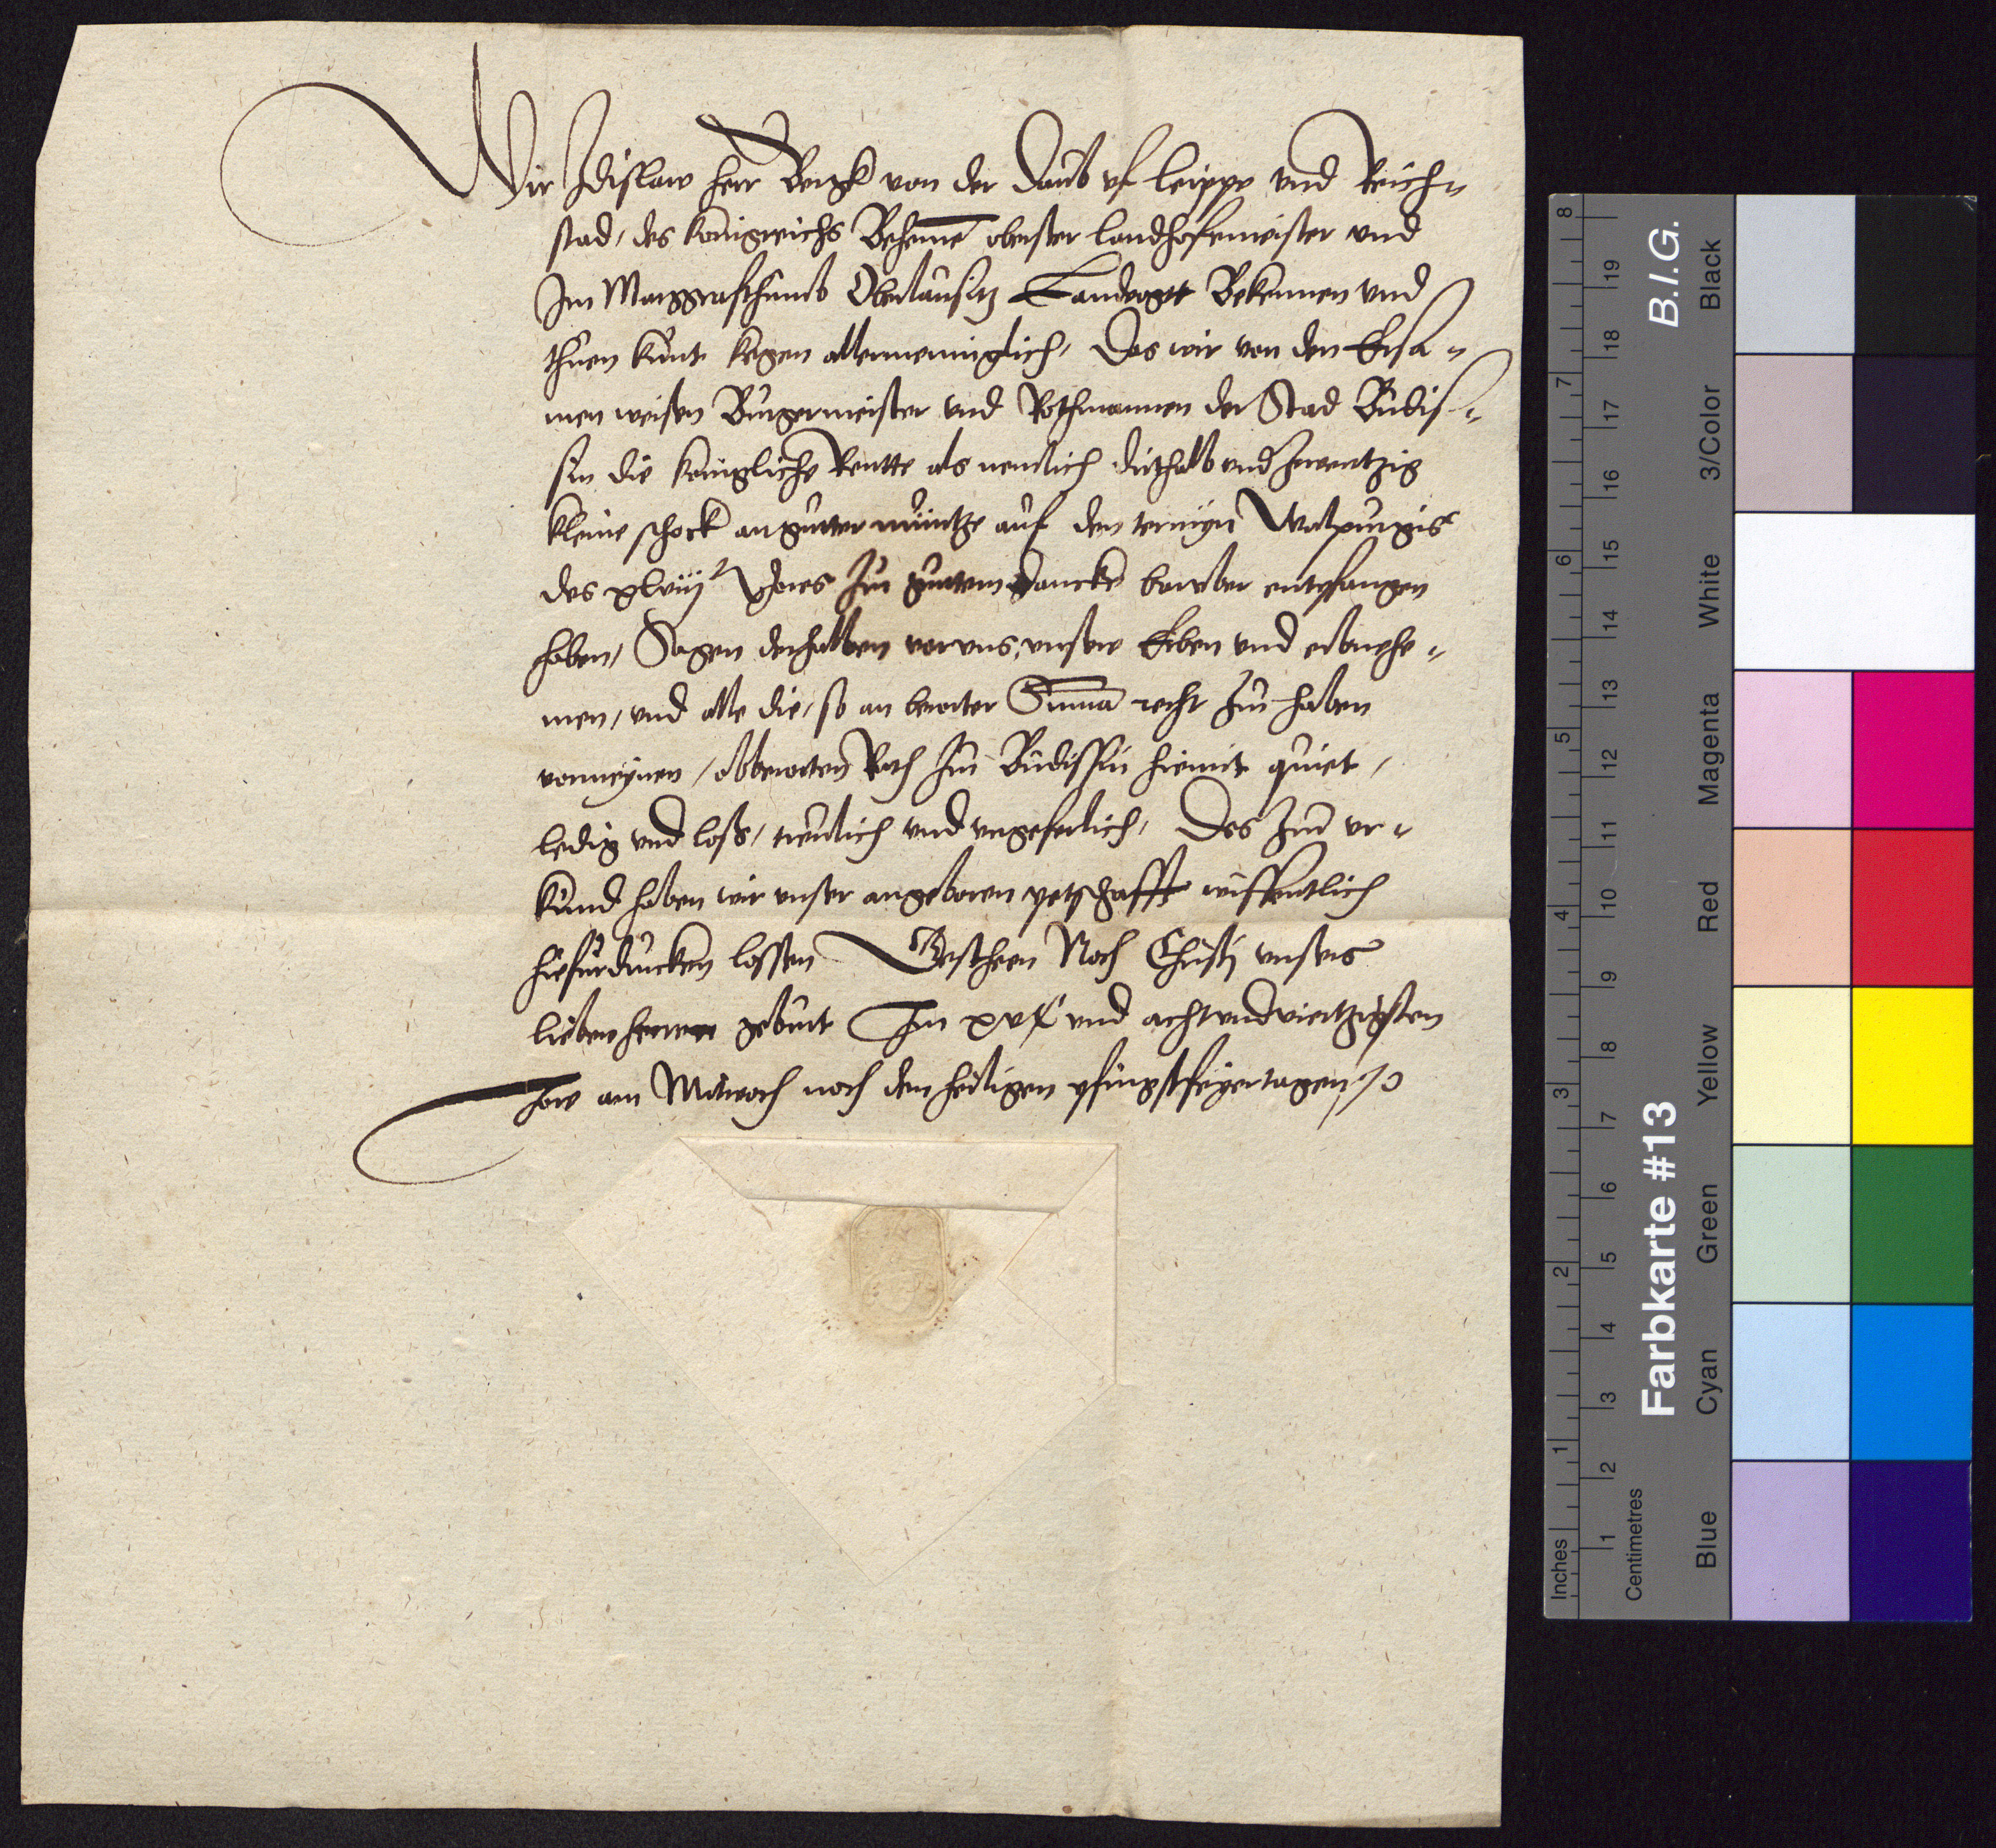 Wir Zdislaw herr Bergk von der Daub vf leippe vnd Reich=
stad, des konigreichs Beheme oberster landhofemeister vnd
Im Marggrafthumb Oberlausitz Landvogtt Bekennen vnd
thuen kunt kegen allermenniglich, Das wir von den Ersa=
men weisen Burgermeister vnd Rathmannen der Stad Budis=
sin die konigliche Rentte als nemlich dirthalb vnd Zwentzig
kleine schock an gutter müntze auf den termyn Walpurgis
des xlviij Jares zu guttem dancke bar vber entpfangen
haben, Sagen derhalben vor vns, vnsere Erben vnd erbnehe=
men, vnd alle die, so an berurter Summa recht zu haben
vormeynen, obberurten Rath zu Budissin hiemit quiet,
ledig vnd loss, treulich vnd vngeferlich, Des zu vr=
kund haben wir vnser angeboren petschafft wissentlich
hiefurdrucken lassen Gescheen Nach Christj vnsers
lieben herren geburt Im xvc vnd achtvndviertzigsten
Jare am Mitwoch nach den heiligen pfingstfeyertagen
Inches
Centimetres
1 2 3 4 5 6 7 8
1 2 3 4 5 6 7 8 9 10 11 12 13 14 15 16 17 18 19
Farbkarte #13
B.I.G.
Blue Cyan Green Yellow Red Magenta White 3/Color Black